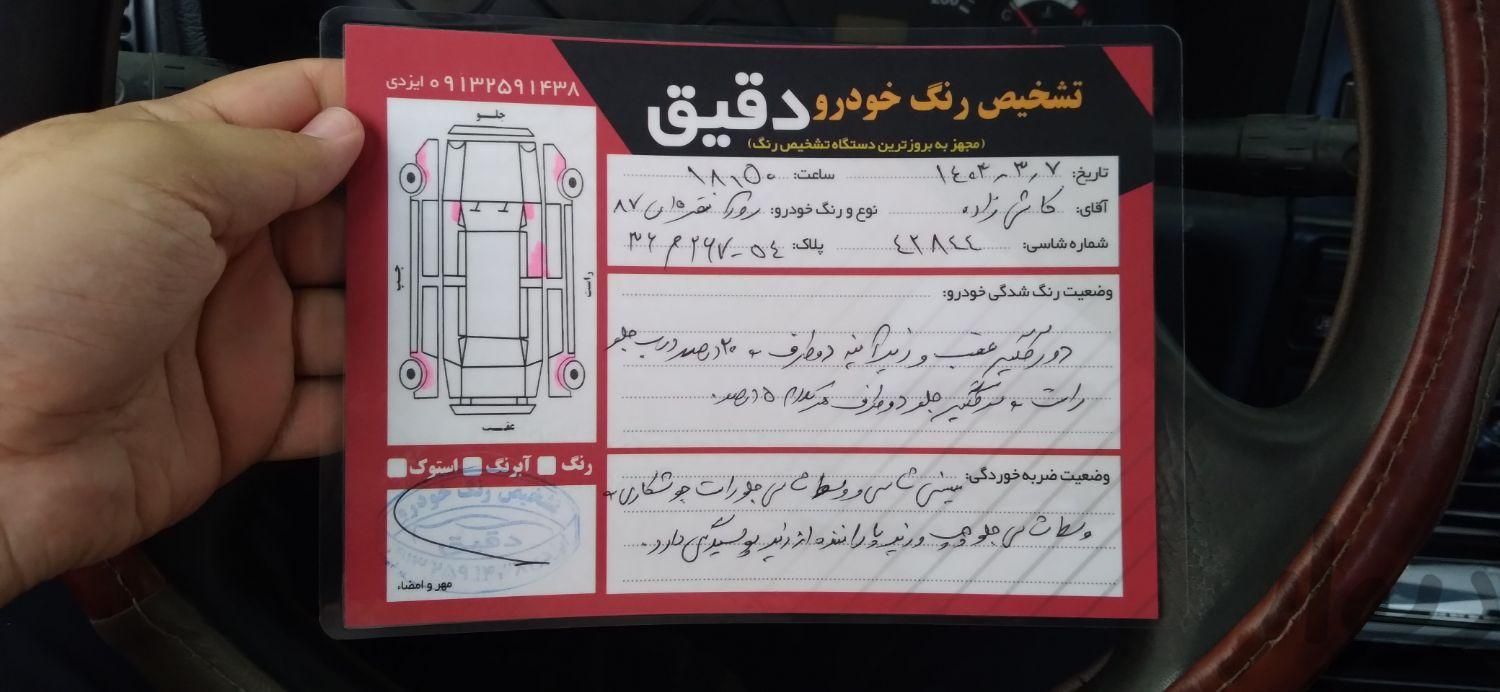 تشخیص رنگ خودرو دقیق
(مجهز به بروزترین دستگاه تشخیص رنگ)
۰۹۱۳۲۵۹۱۴۳۸ ایزدی
جلو
چپ
راست
عقب
تاریخ: ۱۴۰۴-۳-۷ ساعت: ۱۸:۵۰
آقای: کاشی زاده نوع و رنگ خودرو: روآ نقره ای ۸۷
شماره شاسی: ۴۲۸۴۴ پلاک: ۵۴-۲۶۷ م ۳۶
وضعیت رنگ شدگی خودرو:
دور گلگیر عقب و زیر آینه دو طرف و ۲۰ درصد درب جلو
راست و سر گلگیر جلو دو طرف هر کدام ۵ درصد.
وضعیت ضربه خوردگی: سینی شاسی و وسط شاسی جلو راست جوشکاری و
وسط شاسی جلو چپ و زیر پا راننده از زیر پوسیدگی دارد.
رنگ آبرنگ استوک
تشخیص رنگ خودرو
دقیق
مهر و امضاء